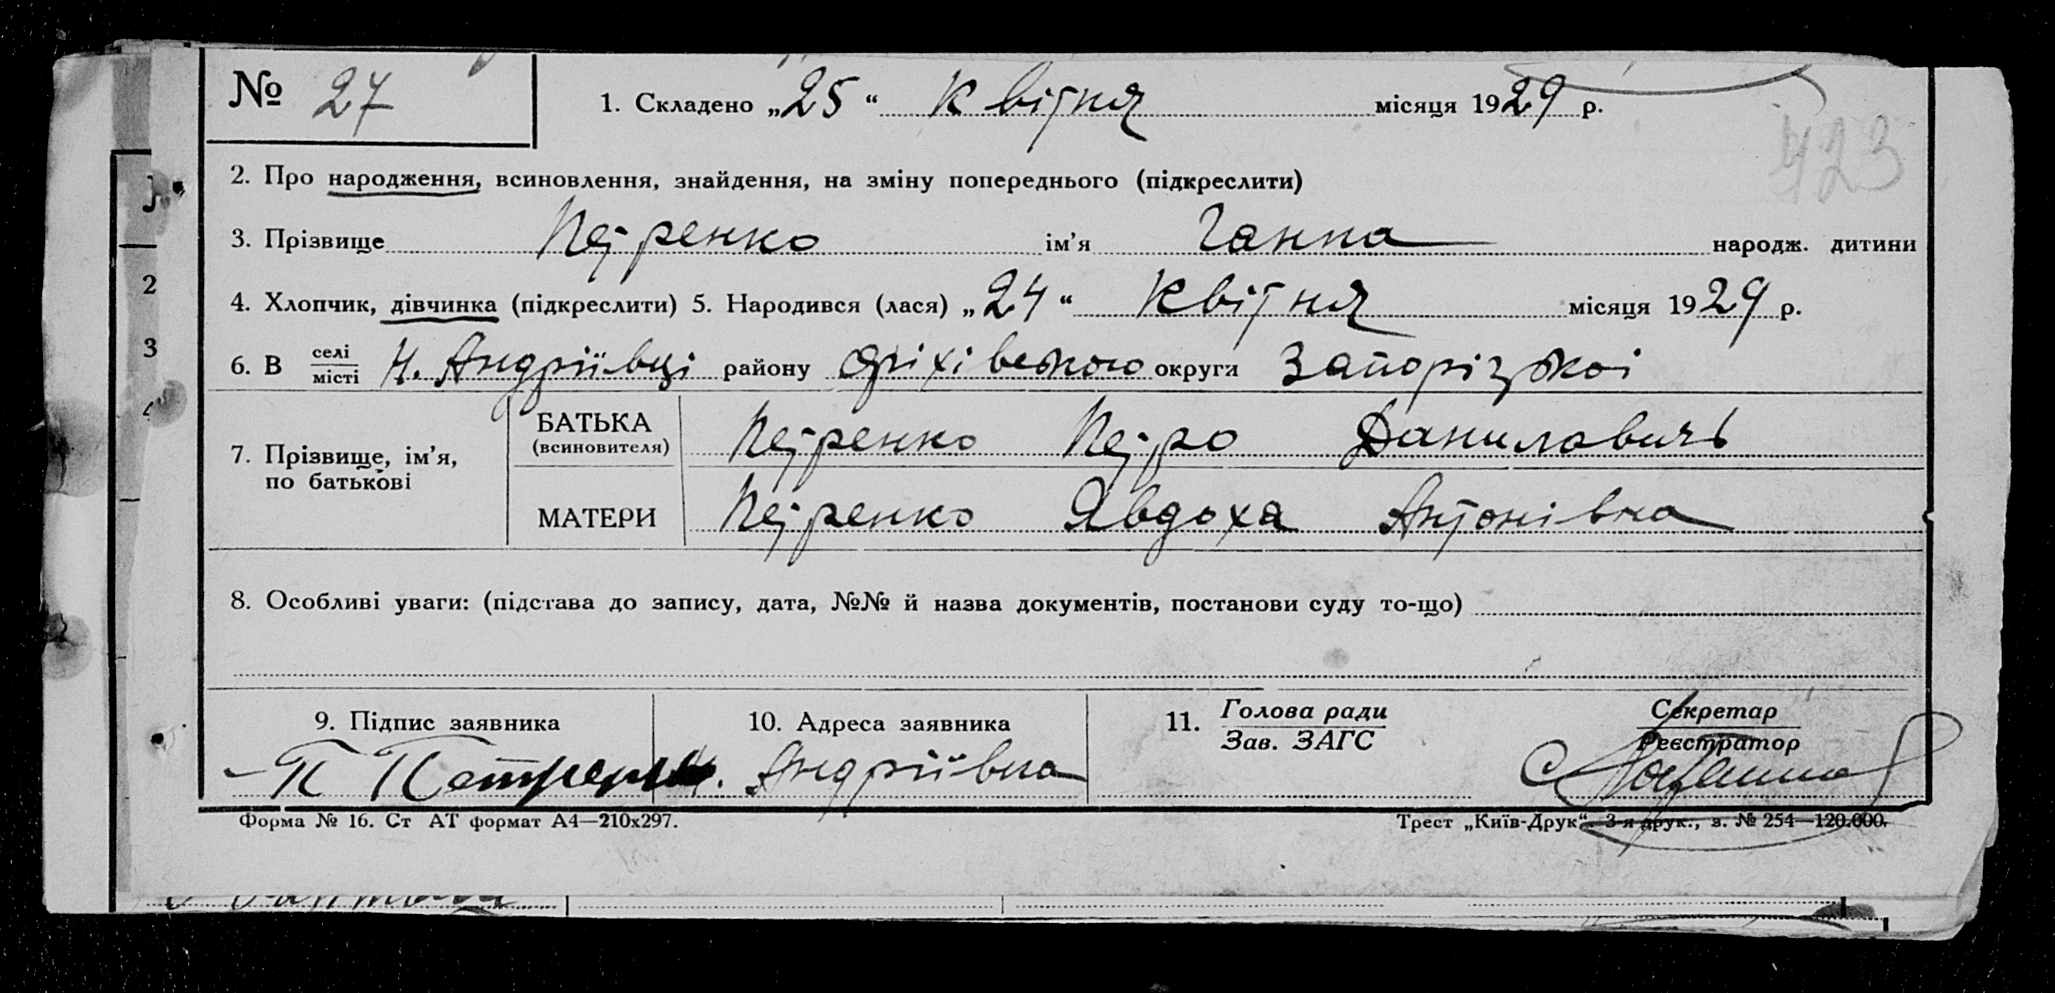 № 27 1. Складено „25“ квітня місяця 1929 р.
423
2. Про народження, всиновлення, знайдення, на зміну попереднього (підкреслити)
3. Прізвище Петренко ім'я Ганна народж. дитини
4. Хлопчик, дівчинка (підкреслити) 5. Народився (лася) „24“ квітня місяця 1929 р.
6. В селі місті Н. Андріївці району Оріхівського округи Запорізької
7. Прізвище, ім'я, по батькові
БАТЬКА (всиновителя) Петренко Петро Даниловичь
МАТЕРИ Петренко Явдоха Антонівна
8. Особливі уваги: (підстава до запису, дата, №№ й назва документів, постанови суду то-що)
9. Підпис заявника 10. Адреса заявника 11. Голова ради Секретар
Зав. ЗАГС Реєстратор
П Петренко Н. Андріївка
Форма № 16. Ст АТ формат А4—210х297. Трест „Київ-Друк“. 3-я друк., з. № 254—120.000.